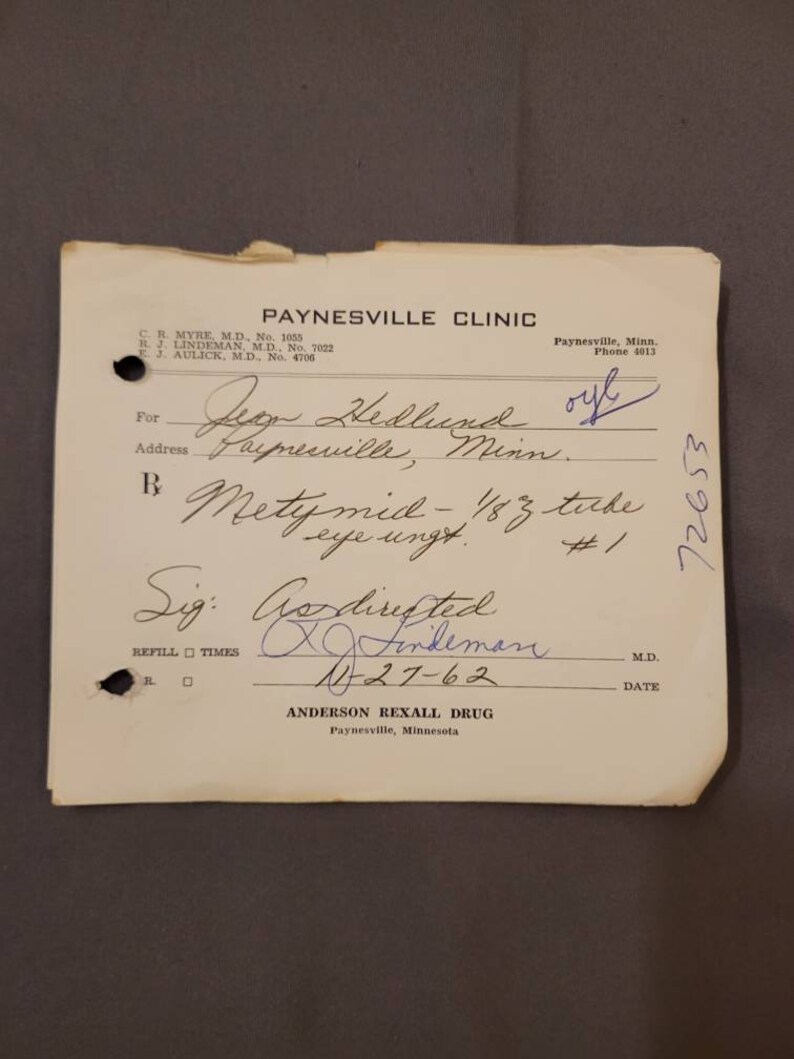 PAYNESVILLE CLINIC
C. R. MYRE, M.D., No. 1055
R. J. LINDEMAN, M.D., No. 7022
E. J. AULICK, M.D., No. 4706
Paynesville, Minn.
Phone 4013
For Jean Hedlund
Address Paynesville, Minn.
℞ Metymid - 1/8 ℥ tube
eye ungt. #1
Sig: As directed
REFILL □ TIMES R J Lindeman M.D.
R. □ 11-27-62 DATE
ANDERSON REXALL DRUG
Paynesville, Minnesota
72653